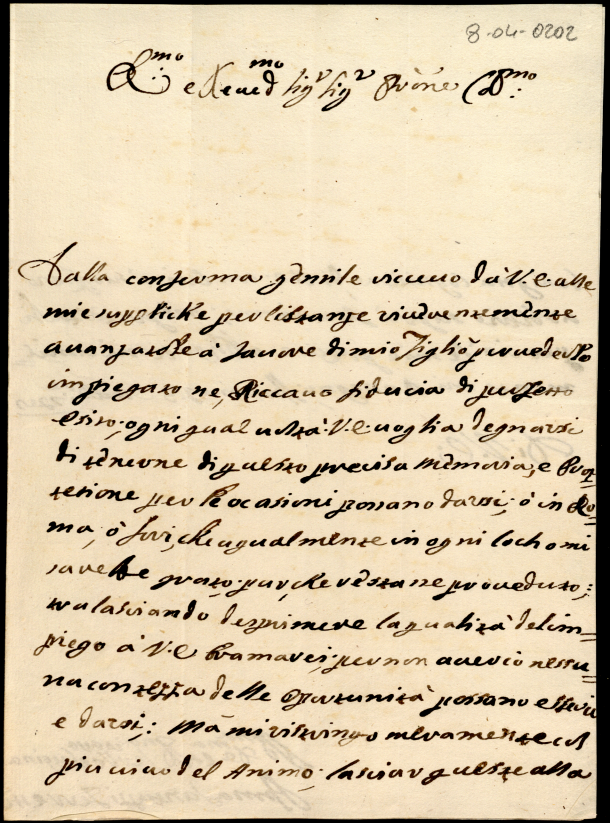 8-04-0202
Ill.mo e Reverd.mo Sig.r Sig.r Prône Col.mo
Dalla conferma gentile riceuo da V.E. alle
mie suppliche per l'istanze riuerentemente
auanzatole à fauore di mio Figlio per uederlo
impiegato ne, Riccauo fiducia di perfetto
esito; ogni qual uolta V.E. uoglia degnarsi
di tenerne di questo precisa memoria, e Prot=
tetione per le ocasioni possano darsi; ò in Ro=
ma, ò fori, che agualmente in ogni locho mi
sarebbe grato, purche restase proueduto;
tralasciando d'esprimere la qualità del im=
piego à V.E. Bramarei; per non auer io nessu=
na contezza delle oportunità possano esserui
e darsi; Mà mi ristringo meramente col
piu uiuo del Animo, lasciar queste alla